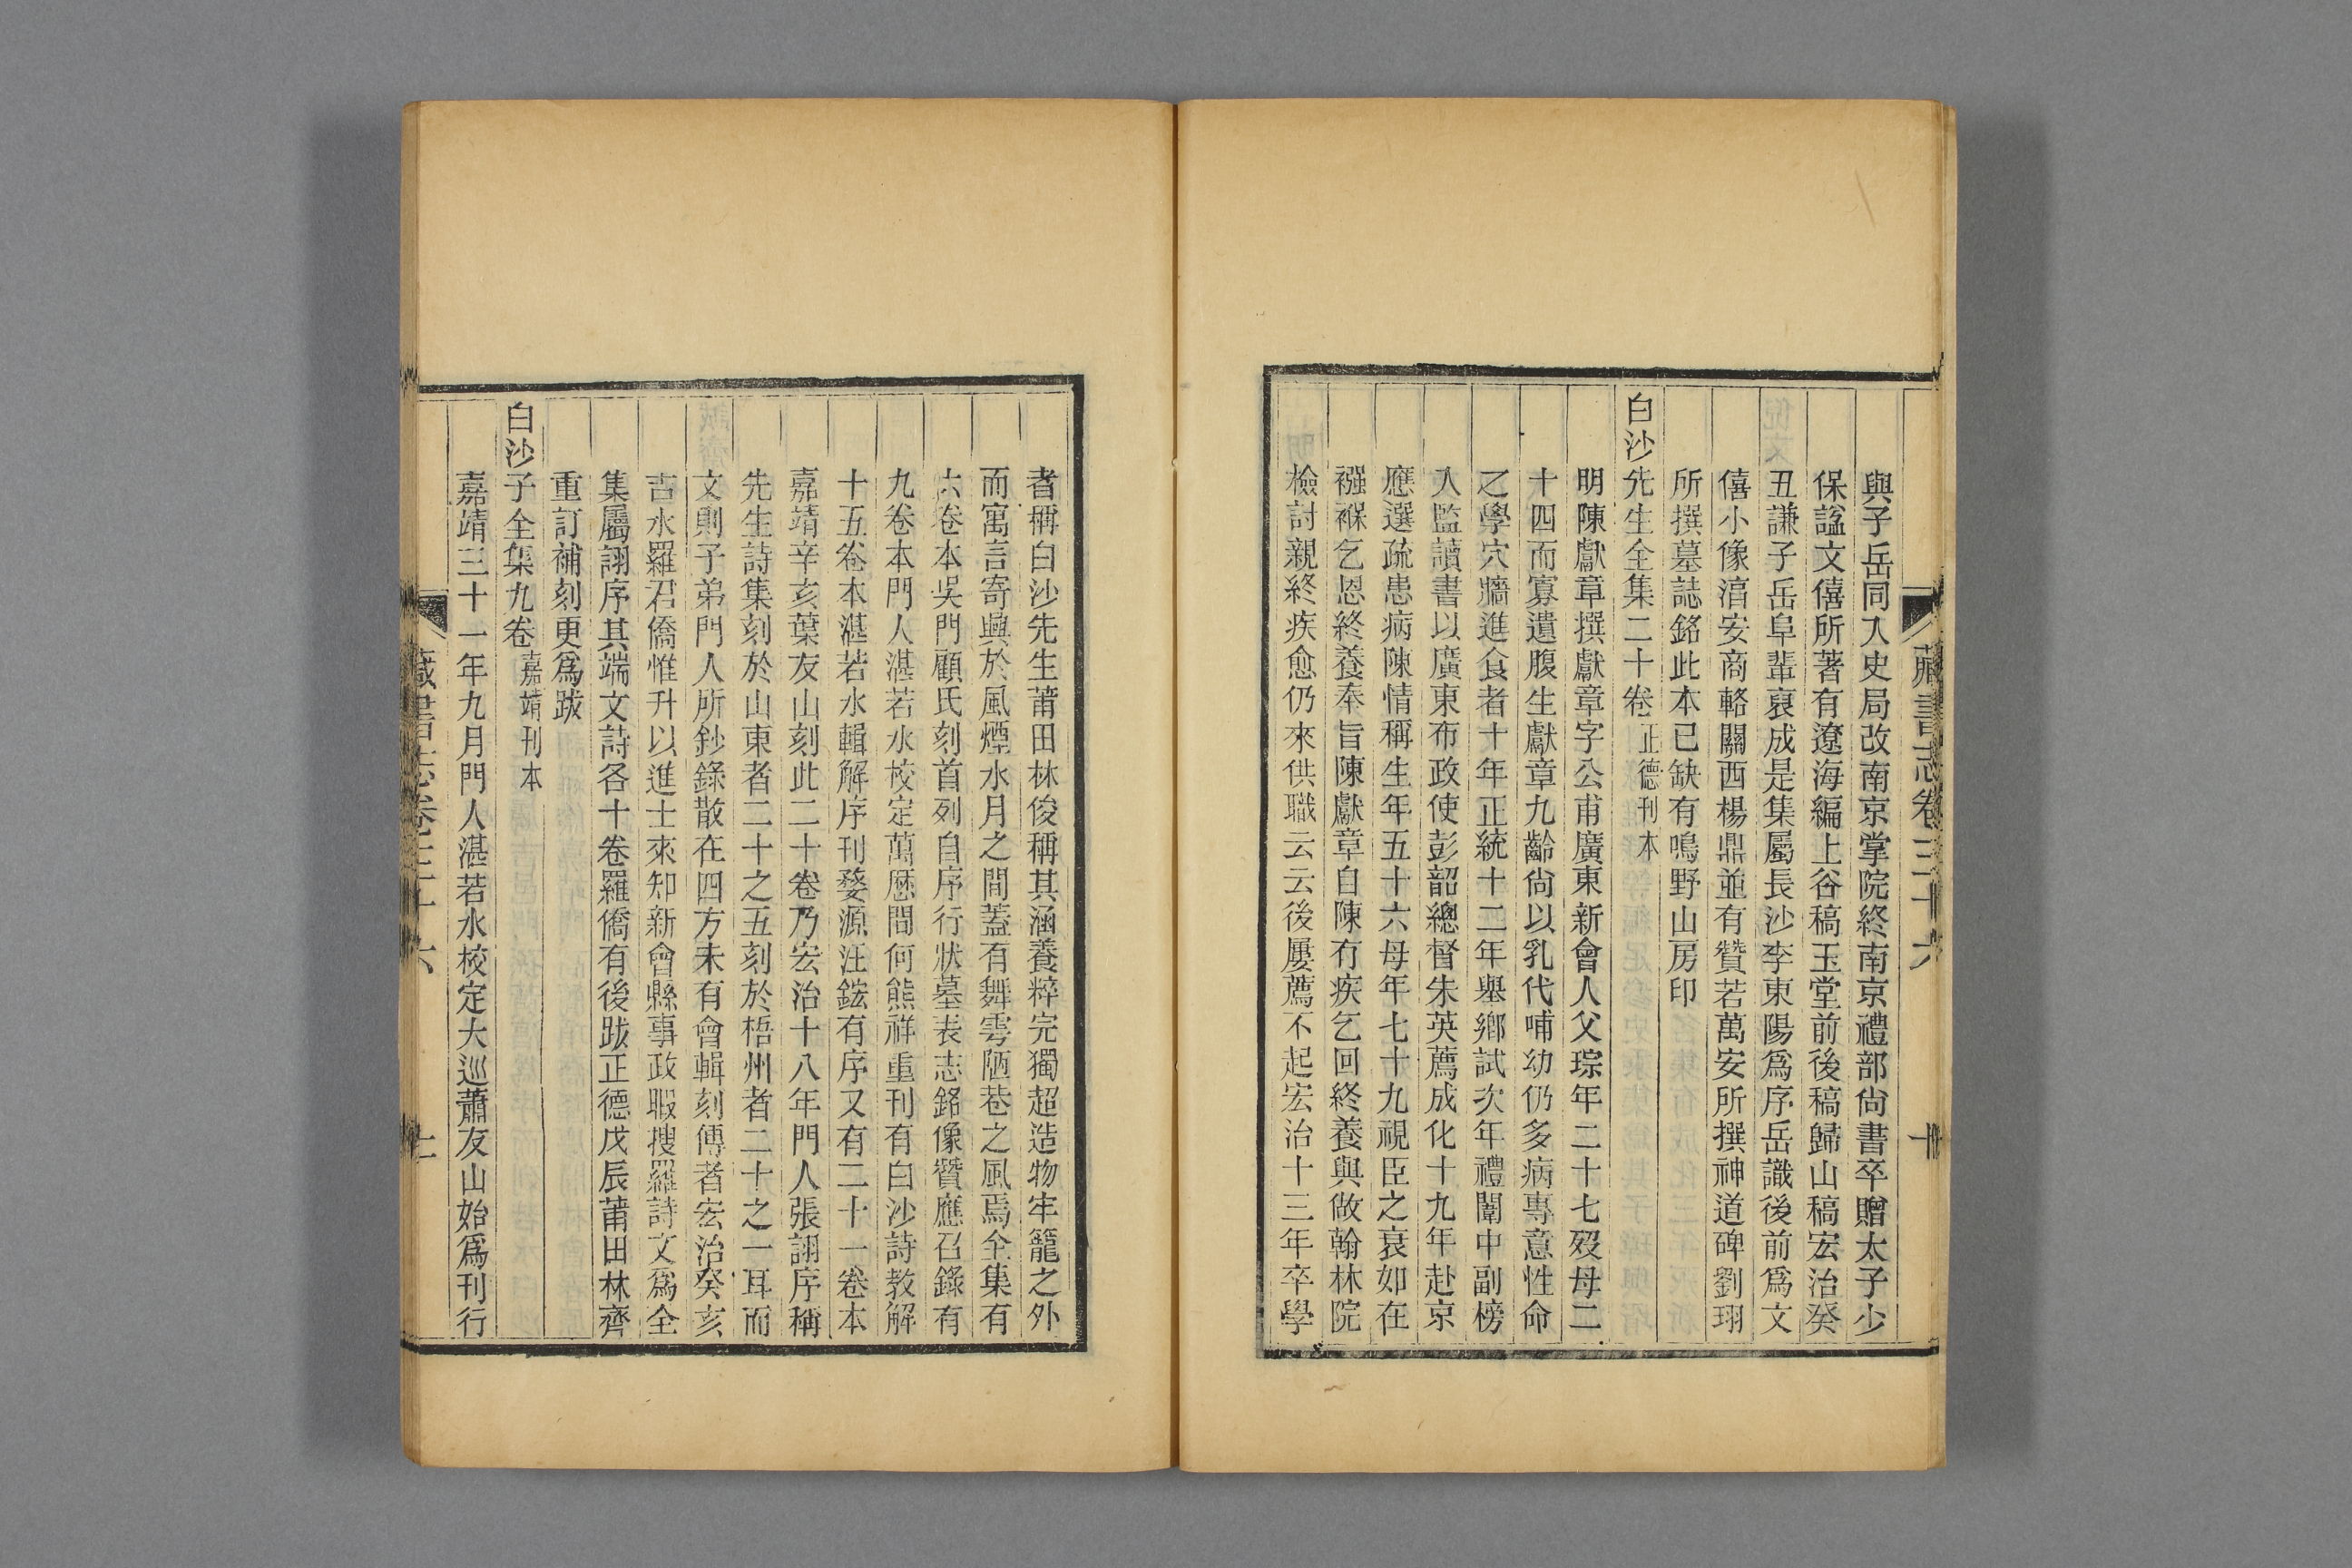 藏書志卷三十六
與子岳同入史局改南京掌院終南京禮部尙書卒贈太子少
保諡文僖所著有遼海編上谷稿玉堂前後稿歸山稿宏治癸
丑謙子岳阜輩裒成是集屬長沙李東陽爲序岳識後前爲文
僖小像淯安商輅關西楊鼎並有贊若萬安所撰神道碑劉珝
所撰墓誌銘此本已缺有鳴野山房印
白沙先生全集二十卷 正德刊本
明陳獻章撰獻章字公甫廣東新會人父琮年二十七歿母二
十四而寡遺腹生獻章九齡尙以乳代哺幼仍多病專意性命
之學穴牆進食者十年正統十二年舉鄉試次年禮闈中副榜
入監讀書以廣東布政使彭韶總督朱英薦成化十九年赴京
應選疏患病陳情稱生年五十六母年七十九視臣之衰如在
襁褓乞恩終養奉旨陳獻章自陳有疾乞回終養與做翰林院
檢討親終疾愈仍來供職云云後屢薦不起宏治十三年卒學
者稱白沙先生莆田林俊稱其涵養粹完獨超造物牢籠之外
而寓言寄興於風煙水月之間蓋有舞雩陋巷之風焉全集有
六卷本吳門顧氏刻首列自序行狀墓表志銘像贊應召錄有
九卷本門人湛若水校定萬厯間何熊祥重刊有白沙詩教解
十五卷本湛若水輯解序刊婺源汪鋐有序又有二十一卷本
嘉靖辛亥葉友山刻此二十卷乃宏治十八年門人張詡序稱
先生詩集刻於山東者二十之五刻於梧州者二十之一耳而
文則子弟門人所鈔錄散在四方未有會輯刻傳者宏治癸亥
吉水羅君僑惟升以進士來知新會縣事政暇搜羅詩文爲全
集屬詡序其端文詩各十卷羅僑有後跋正德戊辰莆田林齊
重訂補刻更爲跋
白沙子全集九卷 嘉靖刊本
嘉靖三十一年九月門人湛若水校定大巡蕭友山始爲刊行
藏書志卷三十六